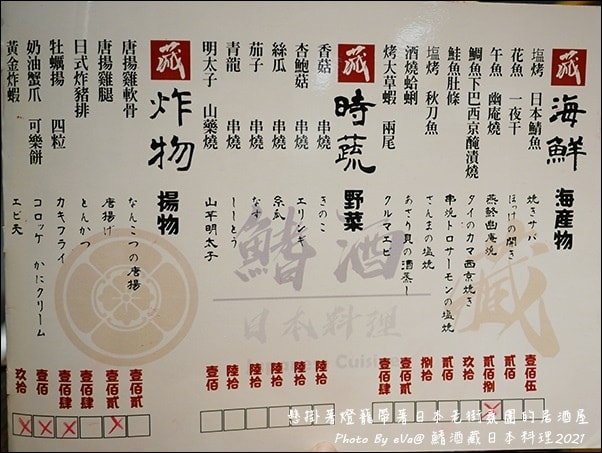 藏 海鮮 海産物
塩烤 日本鯖魚 焼きサバ 壹佰伍
花魚 一夜干 ほっけの開き 貳佰
午魚 幽庵燒 幽庵焼 貳佰捌
鯛魚下巴西京醃漬燒 タイのカマ西京焼き 玖拾
鮭魚肚條 串焼トロサーモンの塩焼 貳佰
塩烤 秋刀魚 さんまの塩焼 捌拾
酒燒蛤蜊 あさり貝の酒蒸し 壹佰
烤大草蝦 兩尾 クルマエビ 壹佰
藏 時蔬 野菜
香菇 串燒 きのこ 陸拾
杏鮑菇 串燒 エリンギ 陸拾
絲瓜 串燒 糸瓜 陸拾
茄子 串燒 なす 陸拾
青龍 串燒 ししとう 陸拾
明太子 山藥燒 山芋明太子 壹佰
藏 炸物 揚物
唐揚雞軟骨 なんこつの唐揚 壹佰貳
唐揚雞腿 唐揚げ 壹佰貳
日式炸豬排 とんかつ 壹佰肆
牡蠣揚 四粒 カキフライ 壹佰肆
奶油蟹爪 可樂餅 コロッケ かにクリーム 壹佰
黃金炸蝦 エビ天 玖拾
鰭酒藏
日本料理
Cuisine
懸掛著燈籠帶著日本老街氛圍的居酒屋
Photo By eVa@ 鰭酒藏日本料理2021